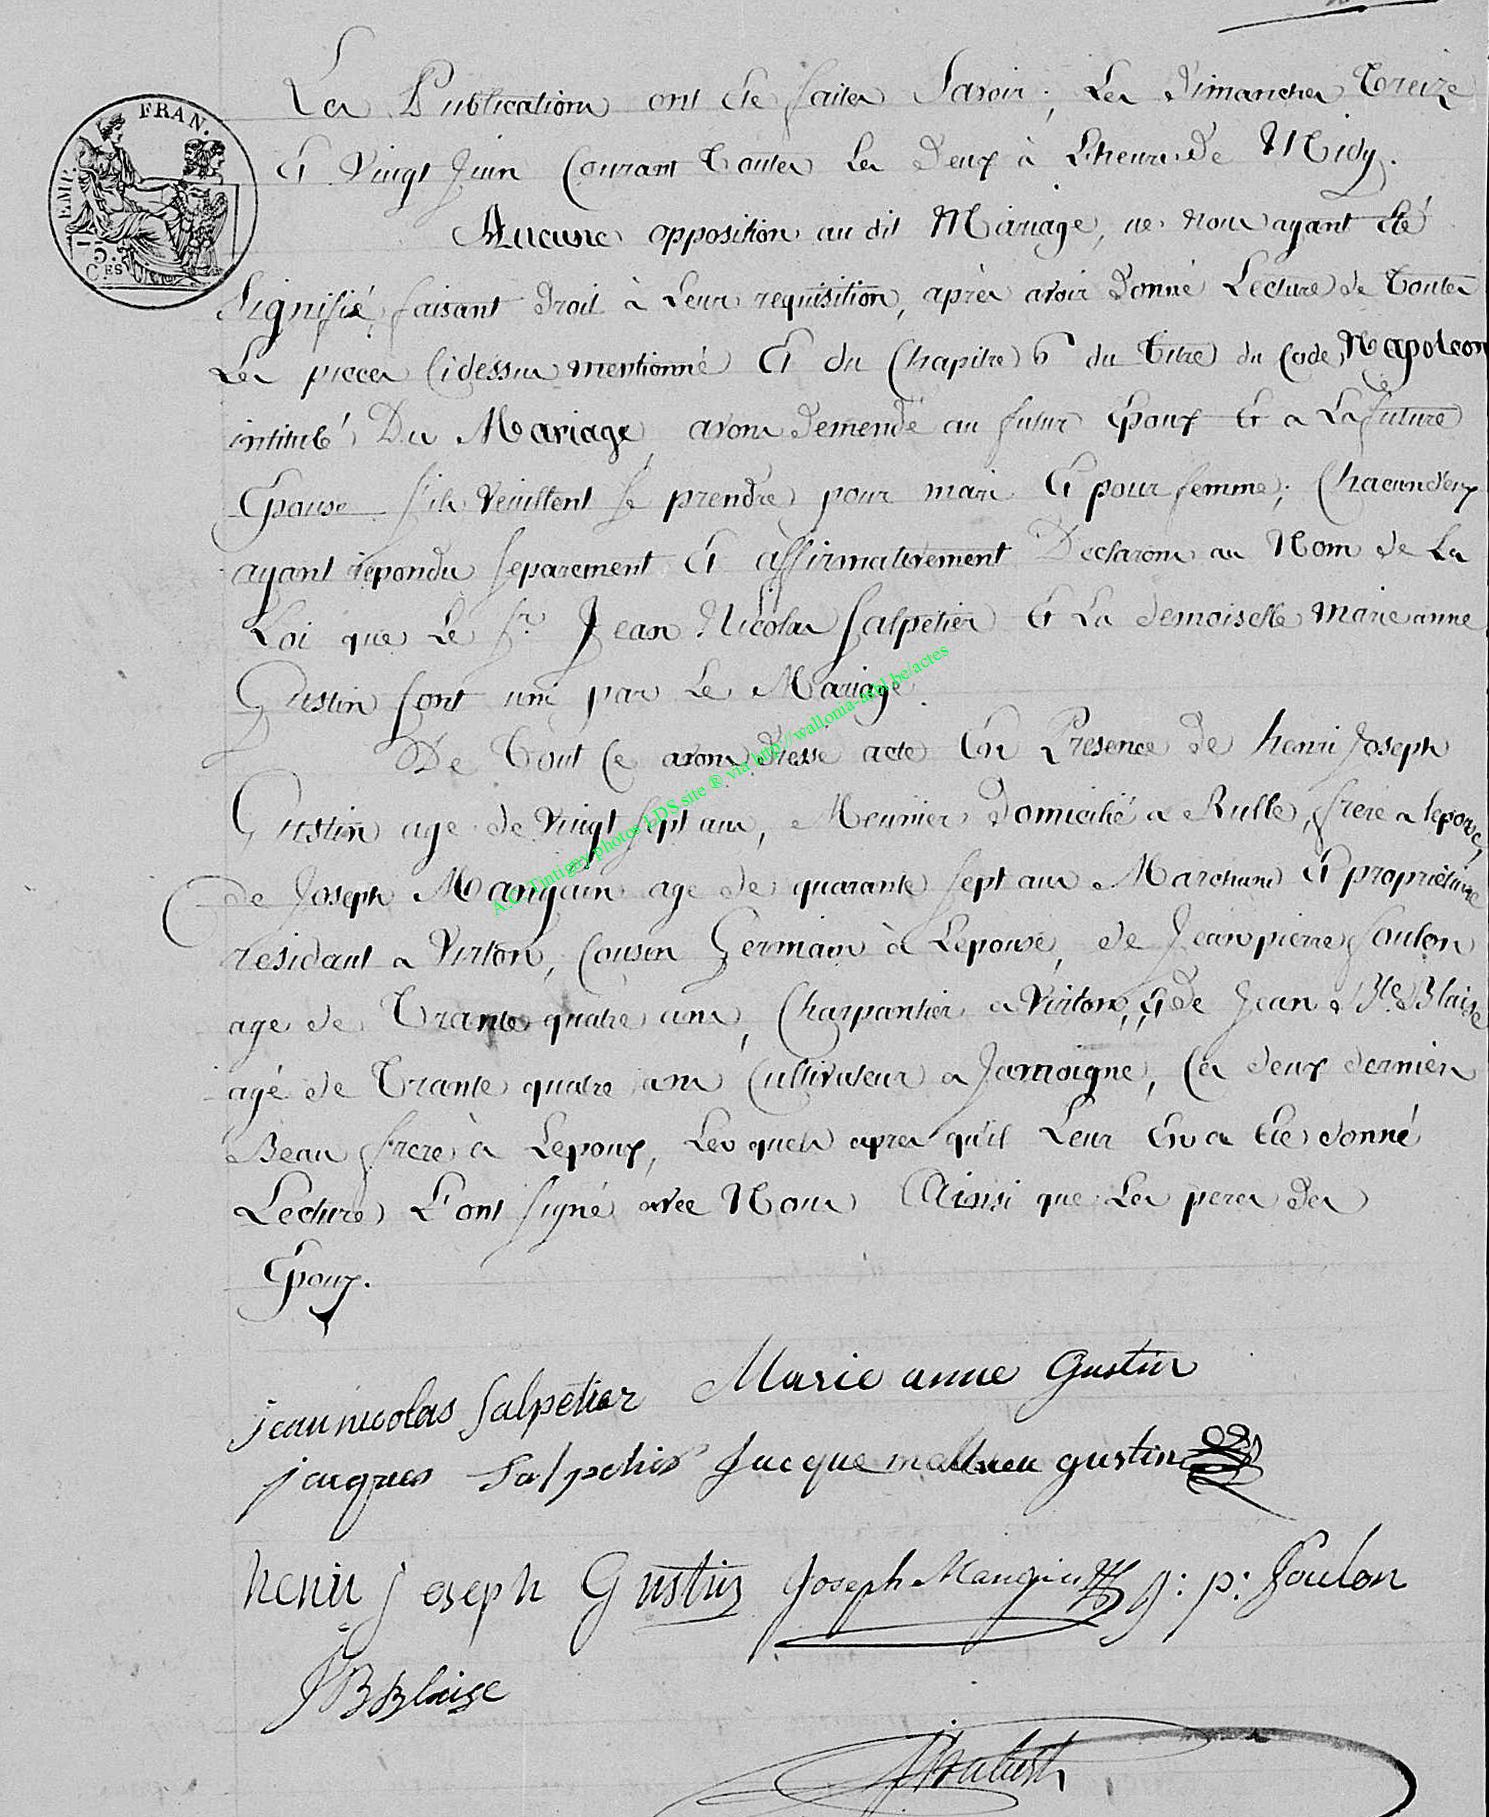 Les Publications ont été faites Savoir; Les Dimanches Treize
FRAN.
EMP.
75.
C.ES
Et Vingt Juin Courant Toutes Les Deux à L'heure de Midy.
Aucune opposition au dit Mariage, ne nous ayant été
Signifié, faisant Droit à Leur requisition, après avoir Donné Lecture de Toutes
Les pieces Cidessus mentionné Et du Chapitre 6 du Titre du Code Napoleon
intitulé Du Mariage, avons Demendé au futur Epoux Et a La future
Epouse S'ils Veuillent Se prendre pour mari Et pour femme; Chacun d'eux
ayant repondu Separement Et affirmativement Declarons au Nom de La
Loi que Le Sr. Jean Nicolas Salpetier Et La demoiselle Marie anne
Gustin Sont uni par Le Mariage.
De Tout Ce avons Dressé acte En Presence de henri Joseph
Gustin age de Vingt Sept ans, Meunier Domicilié a Rulle, frere a Lepouse,
de Joseph Mangin age de quarante Sept ans Marchand Et proprietaire
residant a Virton, Cousin Germain à Lepouse, de Jean pierre foulon
age de Trante quatre ans, Charpantier a Virton, Et De Jean Bte. Blaise
agé de Trante quatre ans Cultivateur a Jamoigne, Ces deux derniers
Beau frere à Lepoux, Lesquels apres qu'il Leur En a Eté donné
Lecture L'ont Signé avec Nous Ainsi que Les peres des
Epoux.
A.C. Tintigny photos LDS site ® via http://wallonia-asbl.be/actes
jean nicolas Salpetier Marie anne Gustin
jaques Salpetier Jacque mathieu gustin
henri joseph Gustin Joseph Mangin g: p: foulon
JB Blaise